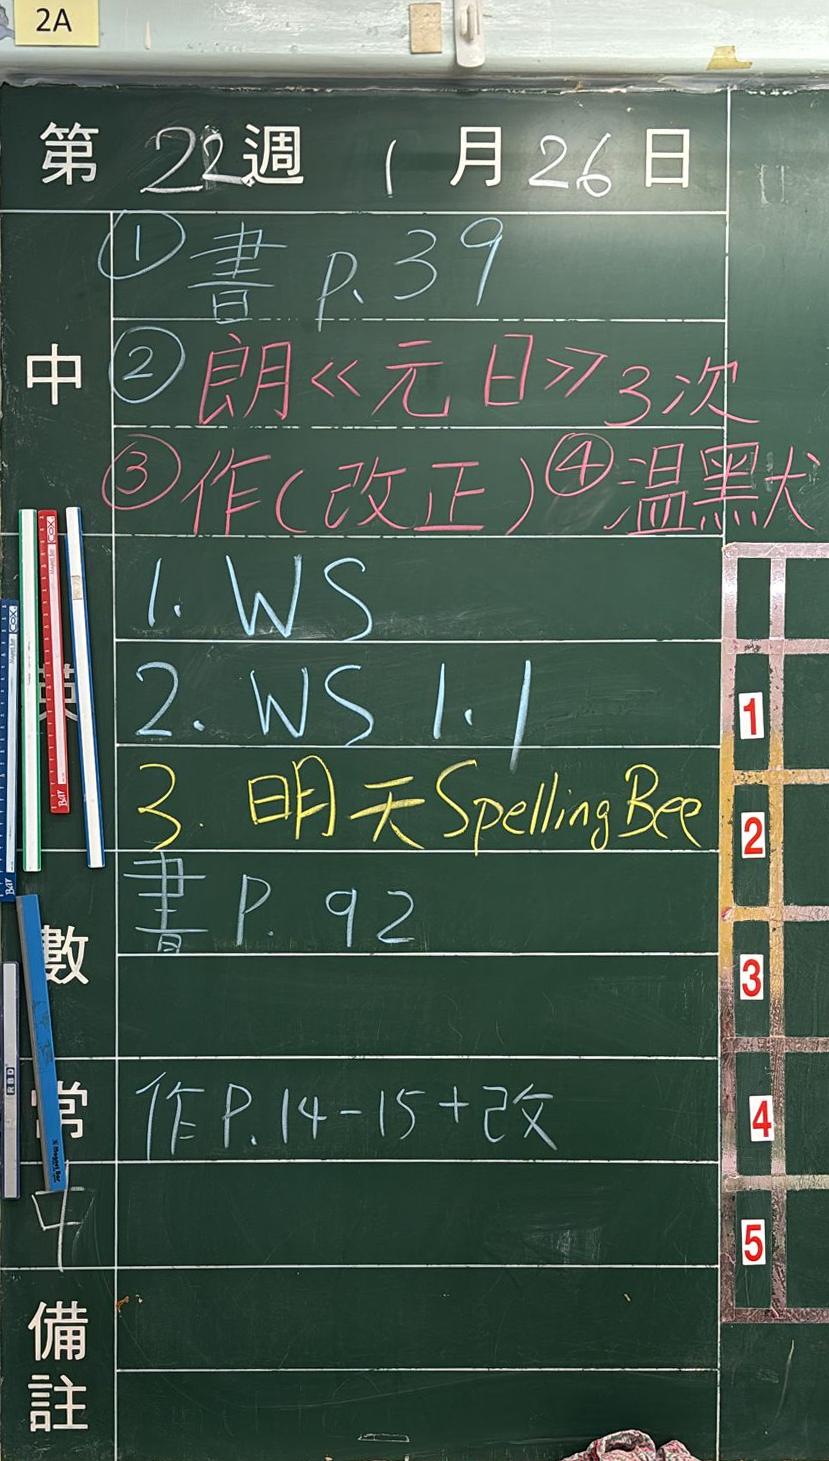 2A
第 22 週 1 月 26 日
中
① 書 P. 39
② 朗《元日》3次
③ 作(改正) ④ 温默
1. WS
2. WS 1.1
3. 明天 Spelling Bee
數
書 P. 92
常
作 P. 14-15 + 改
備註
1
2
3
4
5